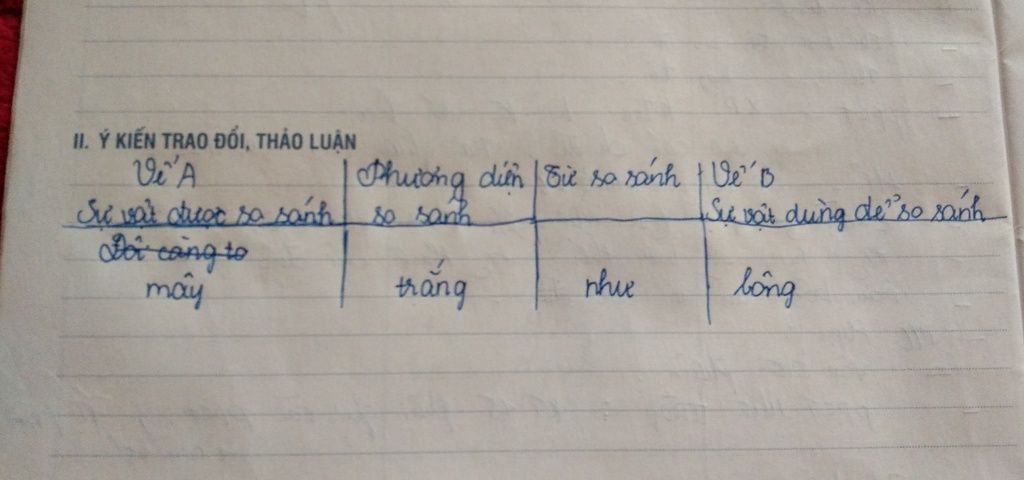 II. Ý KIẾN TRAO ĐỔI, THẢO LUẬN
Vế A Phương diện Từ so sánh Vế B
Sự vật được so sánh so sánh Sự vật dùng để so sánh
Đôi càng to
mây trắng như bông